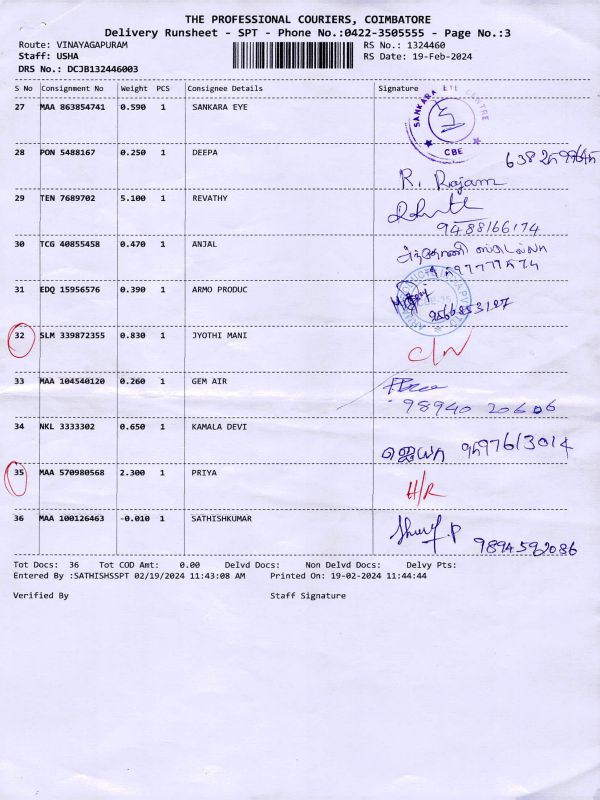 THE PROFESSIONAL COURIERS, COIMBATORE
Delivery Runsheet - SPT - Phone No.:0422-3505555 - Page No.:3
Route: VINAYAGAPURAM RS No.: 1324460
Staff: USHA RS Date: 19-Feb-2024
DRS No.: DCJB132446003
S No Consignment No Weight PCS Consignee Details Signature
27 MAA 863854741 0.590 1 SANKARA EYE
SANKARA EYE CENTRE
CBE
28 PON 5488167 0.250 1 DEEPA
R. Rajam
29 TEN 7689702 5.100 1 REVATHY
9488166174
30 TCG 40855458 0.470 1 ANJAL
31 EDQ 15956576 0.390 1 ARMO PRODUC
9566853187
32 SLM 339872355 0.830 1 JYOTHI MANI C/N
33 MAA 104540120 0.260 1 GEM AIR
98940 20606
34 NKL 3333302 0.650 1 KAMALA DEVI
ஜெயா 9597613014
35 MAA 570980568 2.300 1 PRIYA H/R
36 MAA 100126463 -0.010 1 SATHISHKUMAR
9894592086
Tot Docs: 36 Tot COD Amt: 0.00 Delvd Docs: Non Delvd Docs: Delvy Pts:
Entered By :SATHISHSSPT 02/19/2024 11:43:08 AM Printed On: 19-02-2024 11:44:44
Verified By Staff Signature